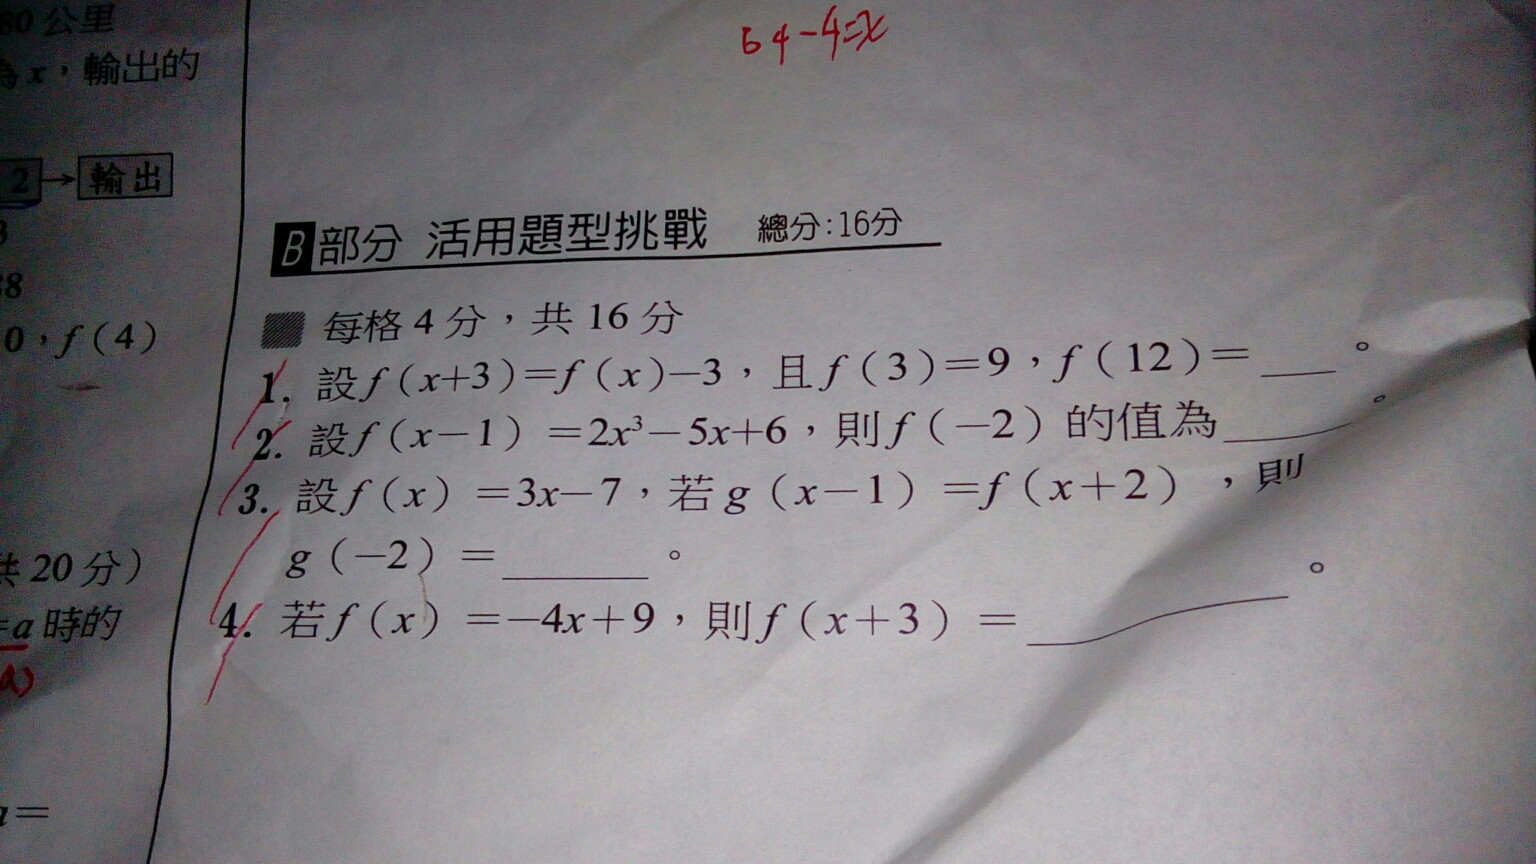 80 公里
為 x，輸出的
2 → 輸出
0，f(4)
共 20 分)
=a 時的
a)
a=
54-4=x
B 部分 活用題型挑戰 總分:16分
每格 4 分，共 16 分
1. 設 f(x+3)=f(x)-3，且 f(3)=9，f(12)=____。
2. 設 f(x-1)=2x³-5x+6，則 f(-2) 的值為____。
3. 設 f(x)=3x-7，若 g(x-1)=f(x+2)，則
g(-2)=____。
4. 若 f(x)=-4x+9，則 f(x+3)=____。